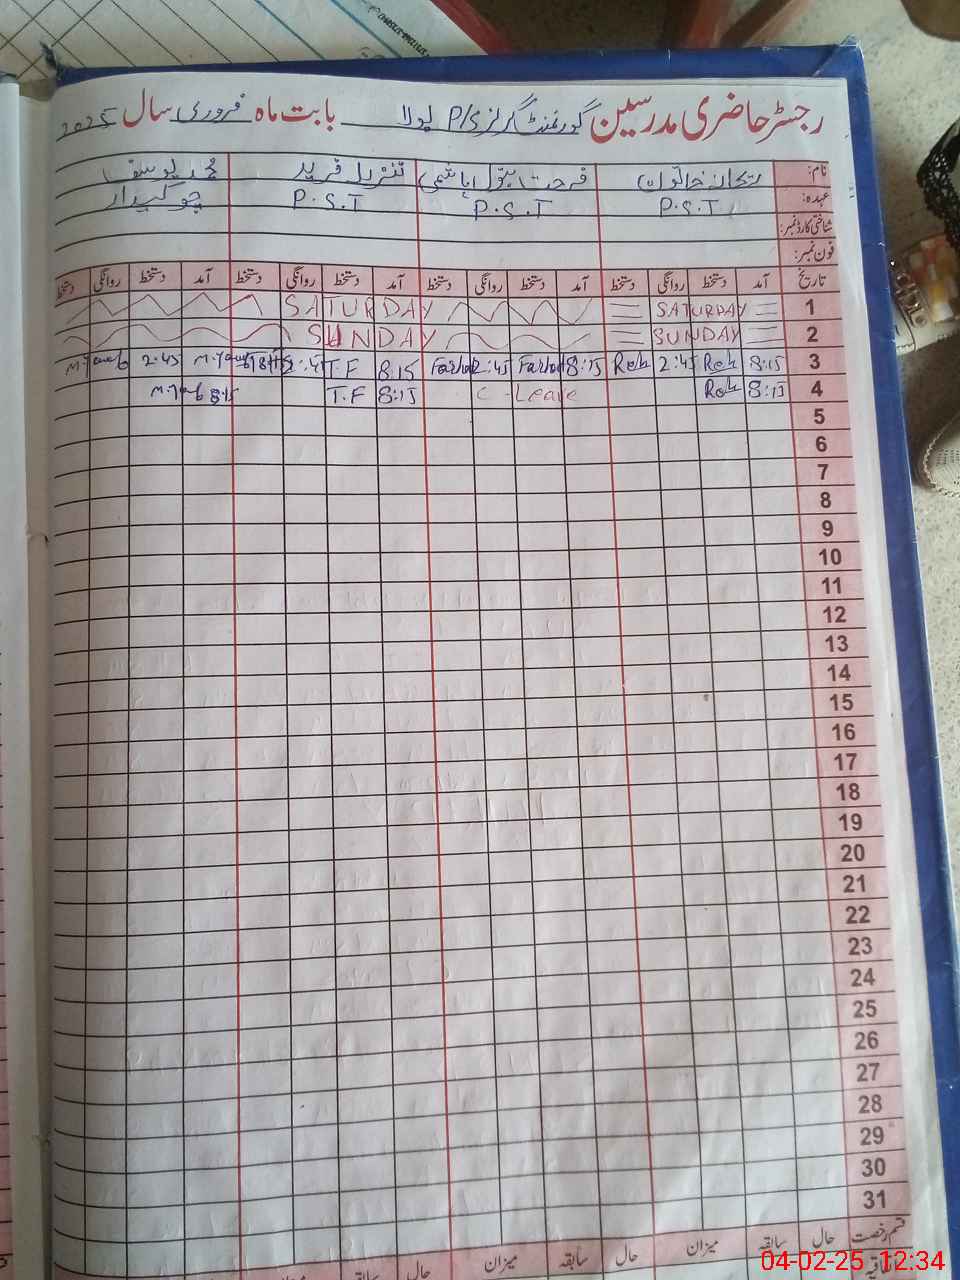 رجسٹر حاضری مدرسین گورنمنٹ گرلز P/S لولا بابت ماہ فروری سال 2025
نام: ریحانہ خاتون فرحت بتول ہاشمی تنزیلہ فرید محمد یوسف
عہدہ: P.S.T P.S.T P.S.T چوکیدار
شناختی کارڈ نمبر:
فون نمبر:
تاریخ آمد دستخط روانگی دستخط آمد دستخط روانگی دستخط آمد دستخط روانگی دستخط آمد دستخط روانگی دستخط
1 SATURDAY SATURDAY
2 SUNDAY SUNDAY
3 8:15 Reh 2:45 Reh 8:15 Farhat 2:45 Farhat 8:15 T.F 2:45 M.Yousuf 2:45 M.Yousuf
4 8:15 Reh C-Leave 8:15 T.F 8:15 M.Yousuf
5
6
7
8
9
10
11
12
13
14
15
16
17
18
19
20
21
22
23
24
25
26
27
28
29
30
31
قسم رخصت حال سابقہ میزان حال سابقہ میزان حال سابقہ میزان
04-02-25 12:34